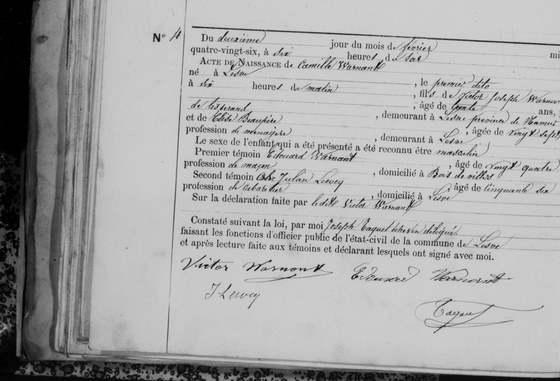 N° 4
Du deuxième jour du mois de février mi
quatre-vingt-six, à six heures du soir
Acte de Naissance de Camille Warnant
né à Lesve, le premier dito
à six heures du matin, fils de Victor Joseph Warnant
âgé de trente ans,
de, demeurant à Lesve province de Namur
et de Beaupère, âgée de vingt sept
profession de ménagère, demeurant à Lesve
Le sexe de l'enfant qui a été présenté a été reconnu être masculin
Premier témoin Edouard Warnant, âgé de vingt quatre
profession de maçon, domicilié à Bois de villers
Second témoin Julien Levey, âgé de cinquante six
profession de cabaretier, domicilié à Lesve
Sur la déclaration faite par ledit Victor Warnant
Constaté suivant la loi, par moi Joseph échevin délégué
faisant les fonctions d'officier public de l'état-civil de la commune de Lesve
et après lecture faite aux témoins et déclarant lesquels ont signé avec moi.
Victor Warnant Edouard Warnant
J Levey